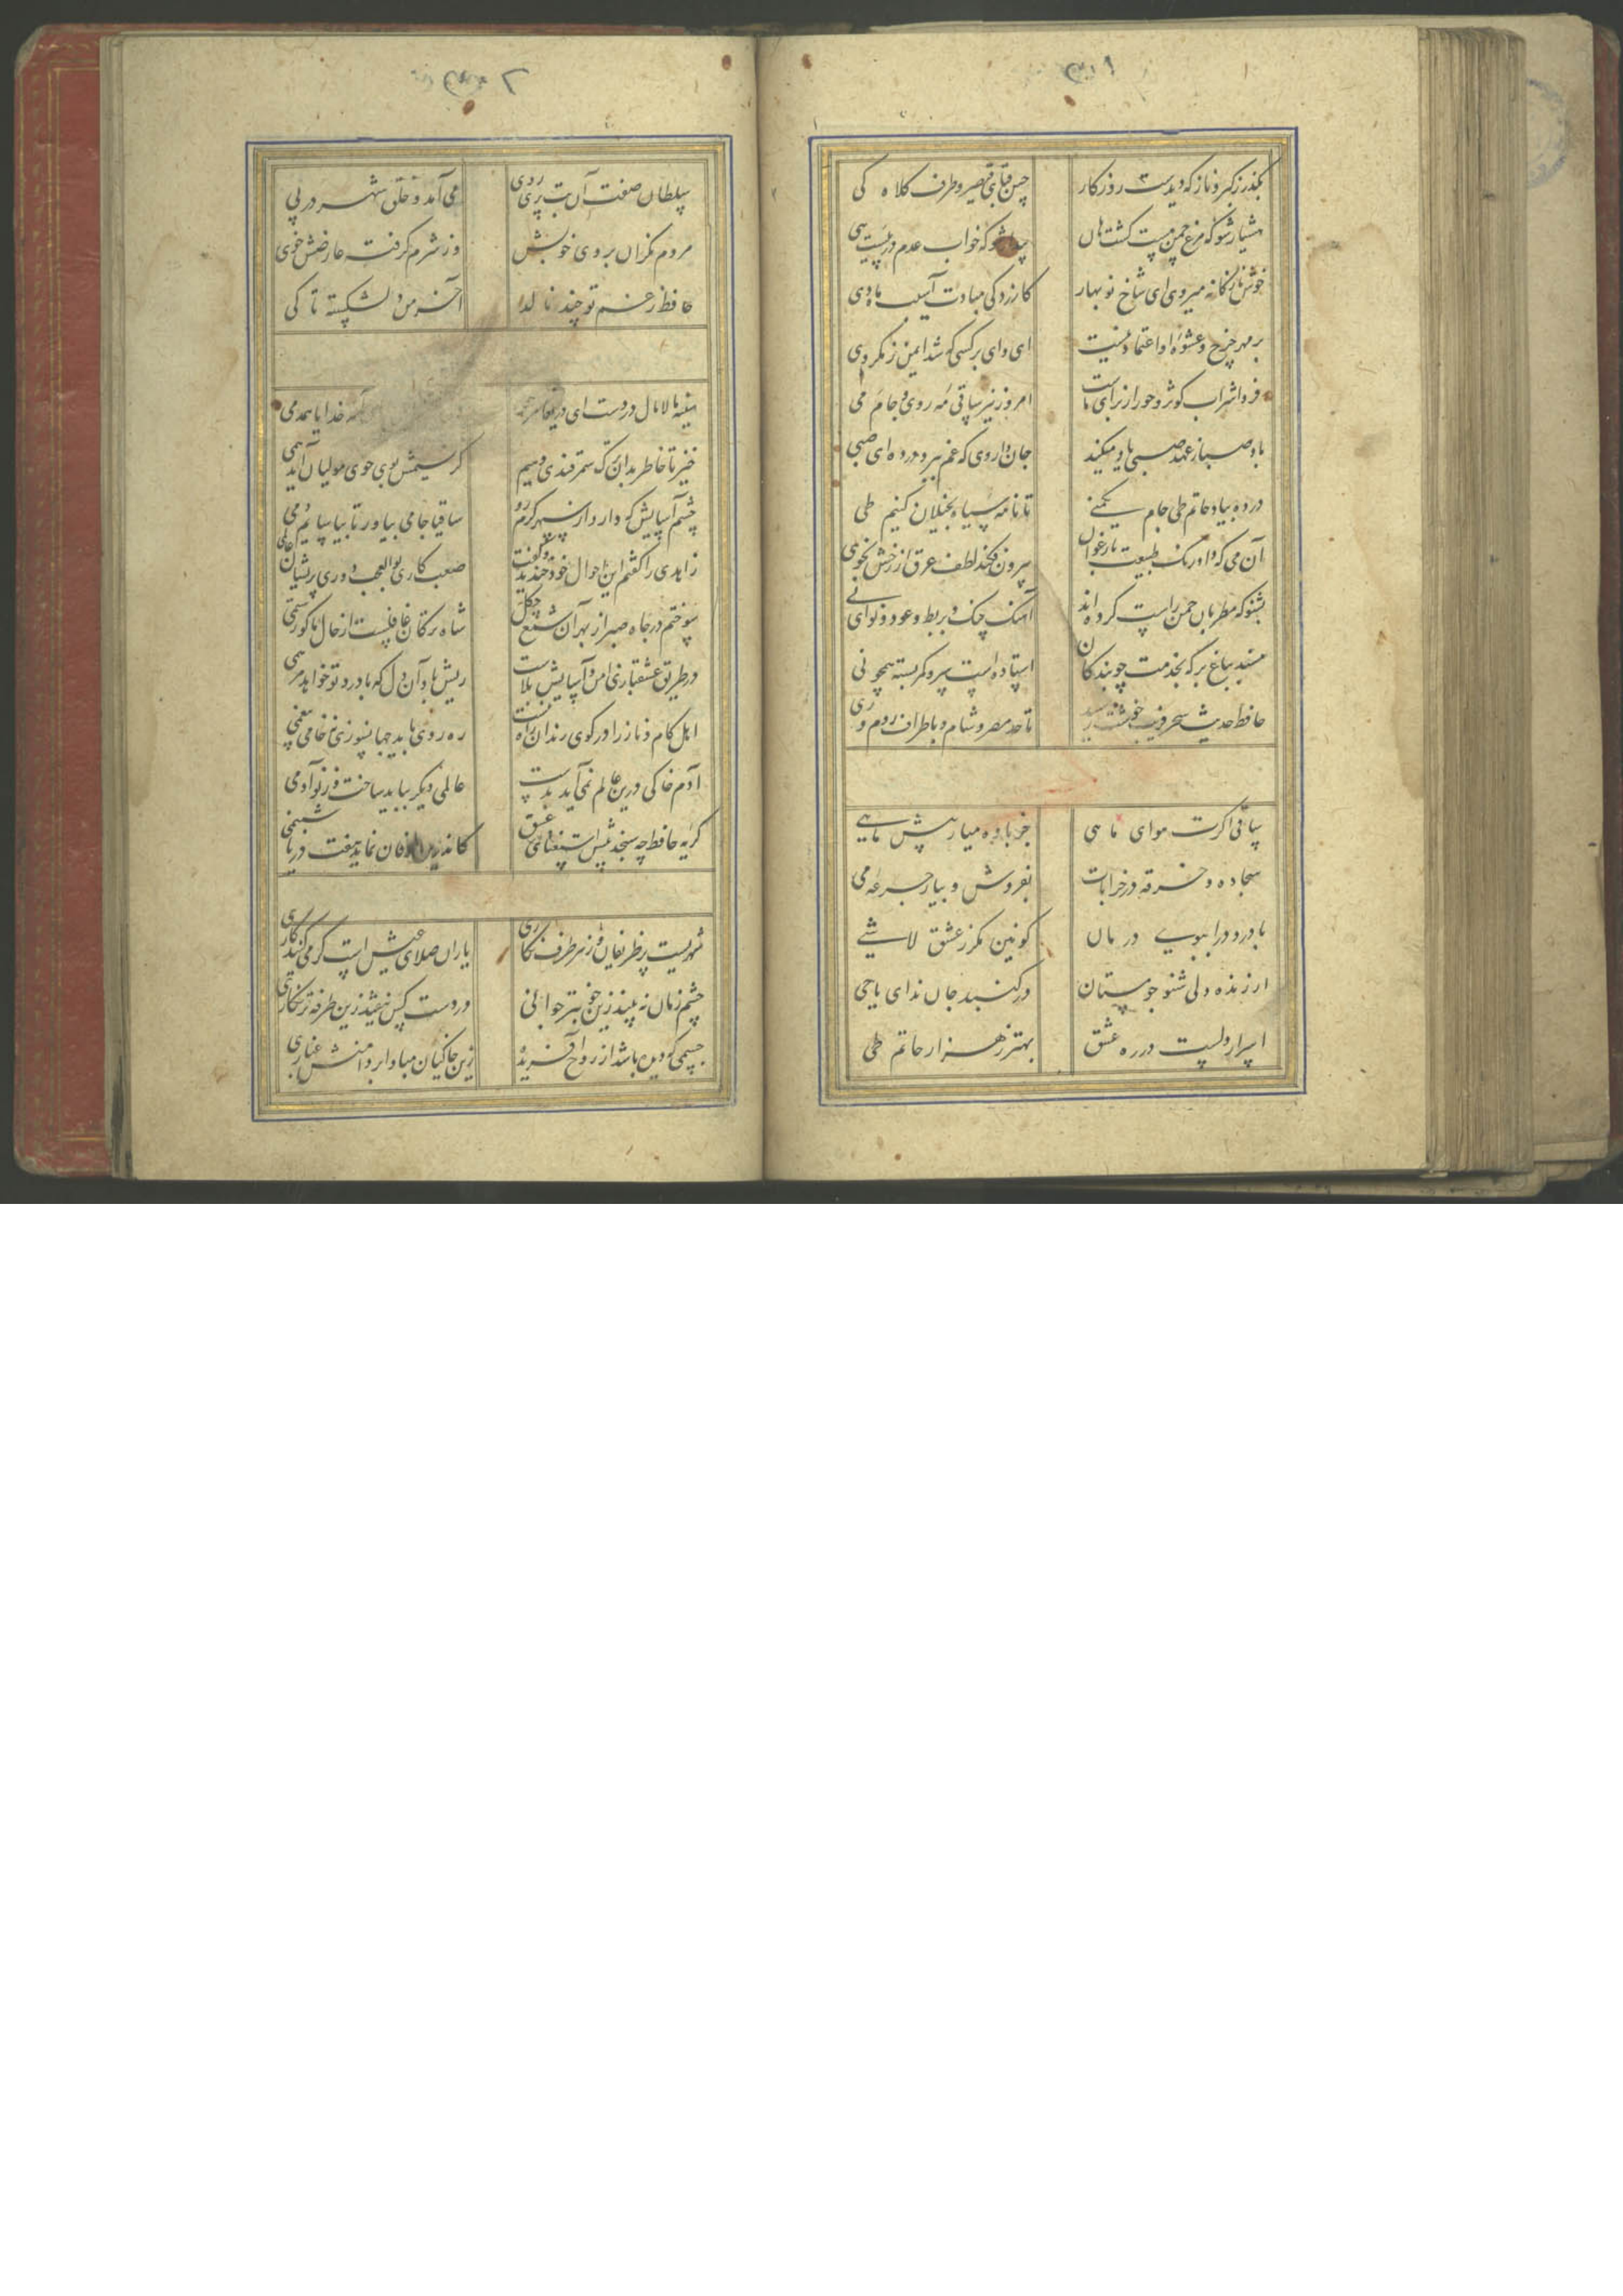 بگذر ز کبر و ناز که دیدست روزکار چین قبای قیصر و طرف کلاه کی
هشیار شو که مرغ چمن مست کشت هان که خواب عدم در پیست هی
خوش نازکانه میروی ای شاخ نوبهار کازردکی مبادت آسیب باد دی
بر مهر چرخ و عشوه او اعتماد نیست ای وای بر کسی که شد ایمن ز مکر وی
فردا شراب کوثر و حور از برای ماست امروز نیز ساقی مه روی و جام می
باد صبا ز عهد صبی یاد میکند جان داروی که غم ببرد در ده ای صبی
در ده بیاد حاتم طی جام یکمنی تا نامه سیاه بخیلان کنیم طی
آن می که داد رنک طبیعت بارغوان بیرون فکند لطف عرق از رخش بخوی
بشنو که مطربان چمن راست کرده اند آهنک چنک و بربط و عود و نوای نی
مسند بباغ بر که بخدمت چو بندکان استاده است سرو کمر بسته همچو نی
حافظ حدیث سحر فریب خوشت رسید تا حد مصر و شام و باطراف روم و ری
ساقی اکرت هوای ما هی جز باده میار پیش ما هی
سجاده و خرقه در خرابات بفروش و بیار جرعه می
با درد درا ببوی درمان کونین نکر ز عشق لا شی
ار زنده دلی شنو ز مستان در کنبد جان ندای یا حی
اسرار دلست در ره عشق بهتر ز هزار حاتم طی
سلطان صفت آن بت پری روی می آمد و خلق شهر در پی
مردم نکران بروی خوبش وز شرم کرفته عارضش خوی
حافظ ز غم تو چند نالد آخر من دلشکسته تا کی
سینه مالامال دردست ای دریغا مرهمی خدایا همدمی
خیز تا خاطر بدان ترک سمرقندی دهیم کز نسیمش بوی جوی مولیان آید همی
چشم آسایش که دارد از سپهر کرم رو ساقیا جامی بیاور تا بیاسایم دمی
زاهدی را کفتم این احوال خود خندید و کفت صعب کاری بوالعجب دوری پریشان عالمی
سوختم در چاه صبر از بهر آن شمع چکل شاه ترکان غافلست از حال ما کو رستمی
در طریق عشقبازی امن و آسایش بلاست ریش باد آن دل که با درد تو خواهد مرهمی
اهل کام و ناز را در کوی رندان راه نیست ره روی باید جهانسوزی نه خامی بیغمی
آدم خاکی درین عالم نمی آید بدست عالمی دیکر بباید ساخت وز نو آدمی
کریه حافظ چه سنجد پیش استغنای عشق کاندرین طوفان نماید هفت دریا شبنمی
شهریست پر ظریفان وز هر طرف نکاری یاران صلای عیش است کر می کنید کاری
چشم زمان نه بیند زین خوبتر جوانی در دست کس نیفتد زین طرفه تر نکاری
جسمی که دیده باشد از روح آفریده زین خاکیان مبادا بر دامنش غباری